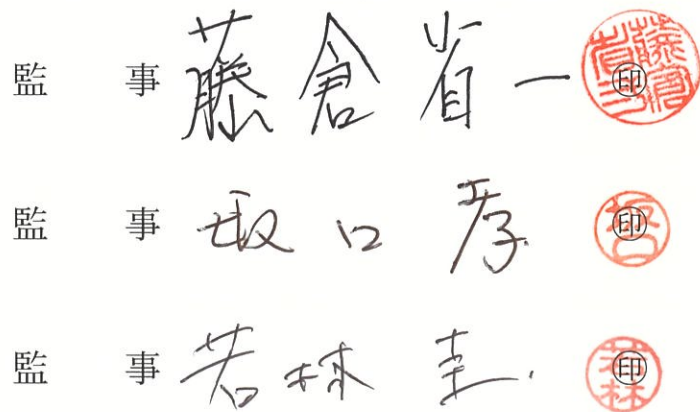 監 事 藤倉省一 ㊞
監 事 坂口孝 ㊞
監 事 若林圭 ㊞